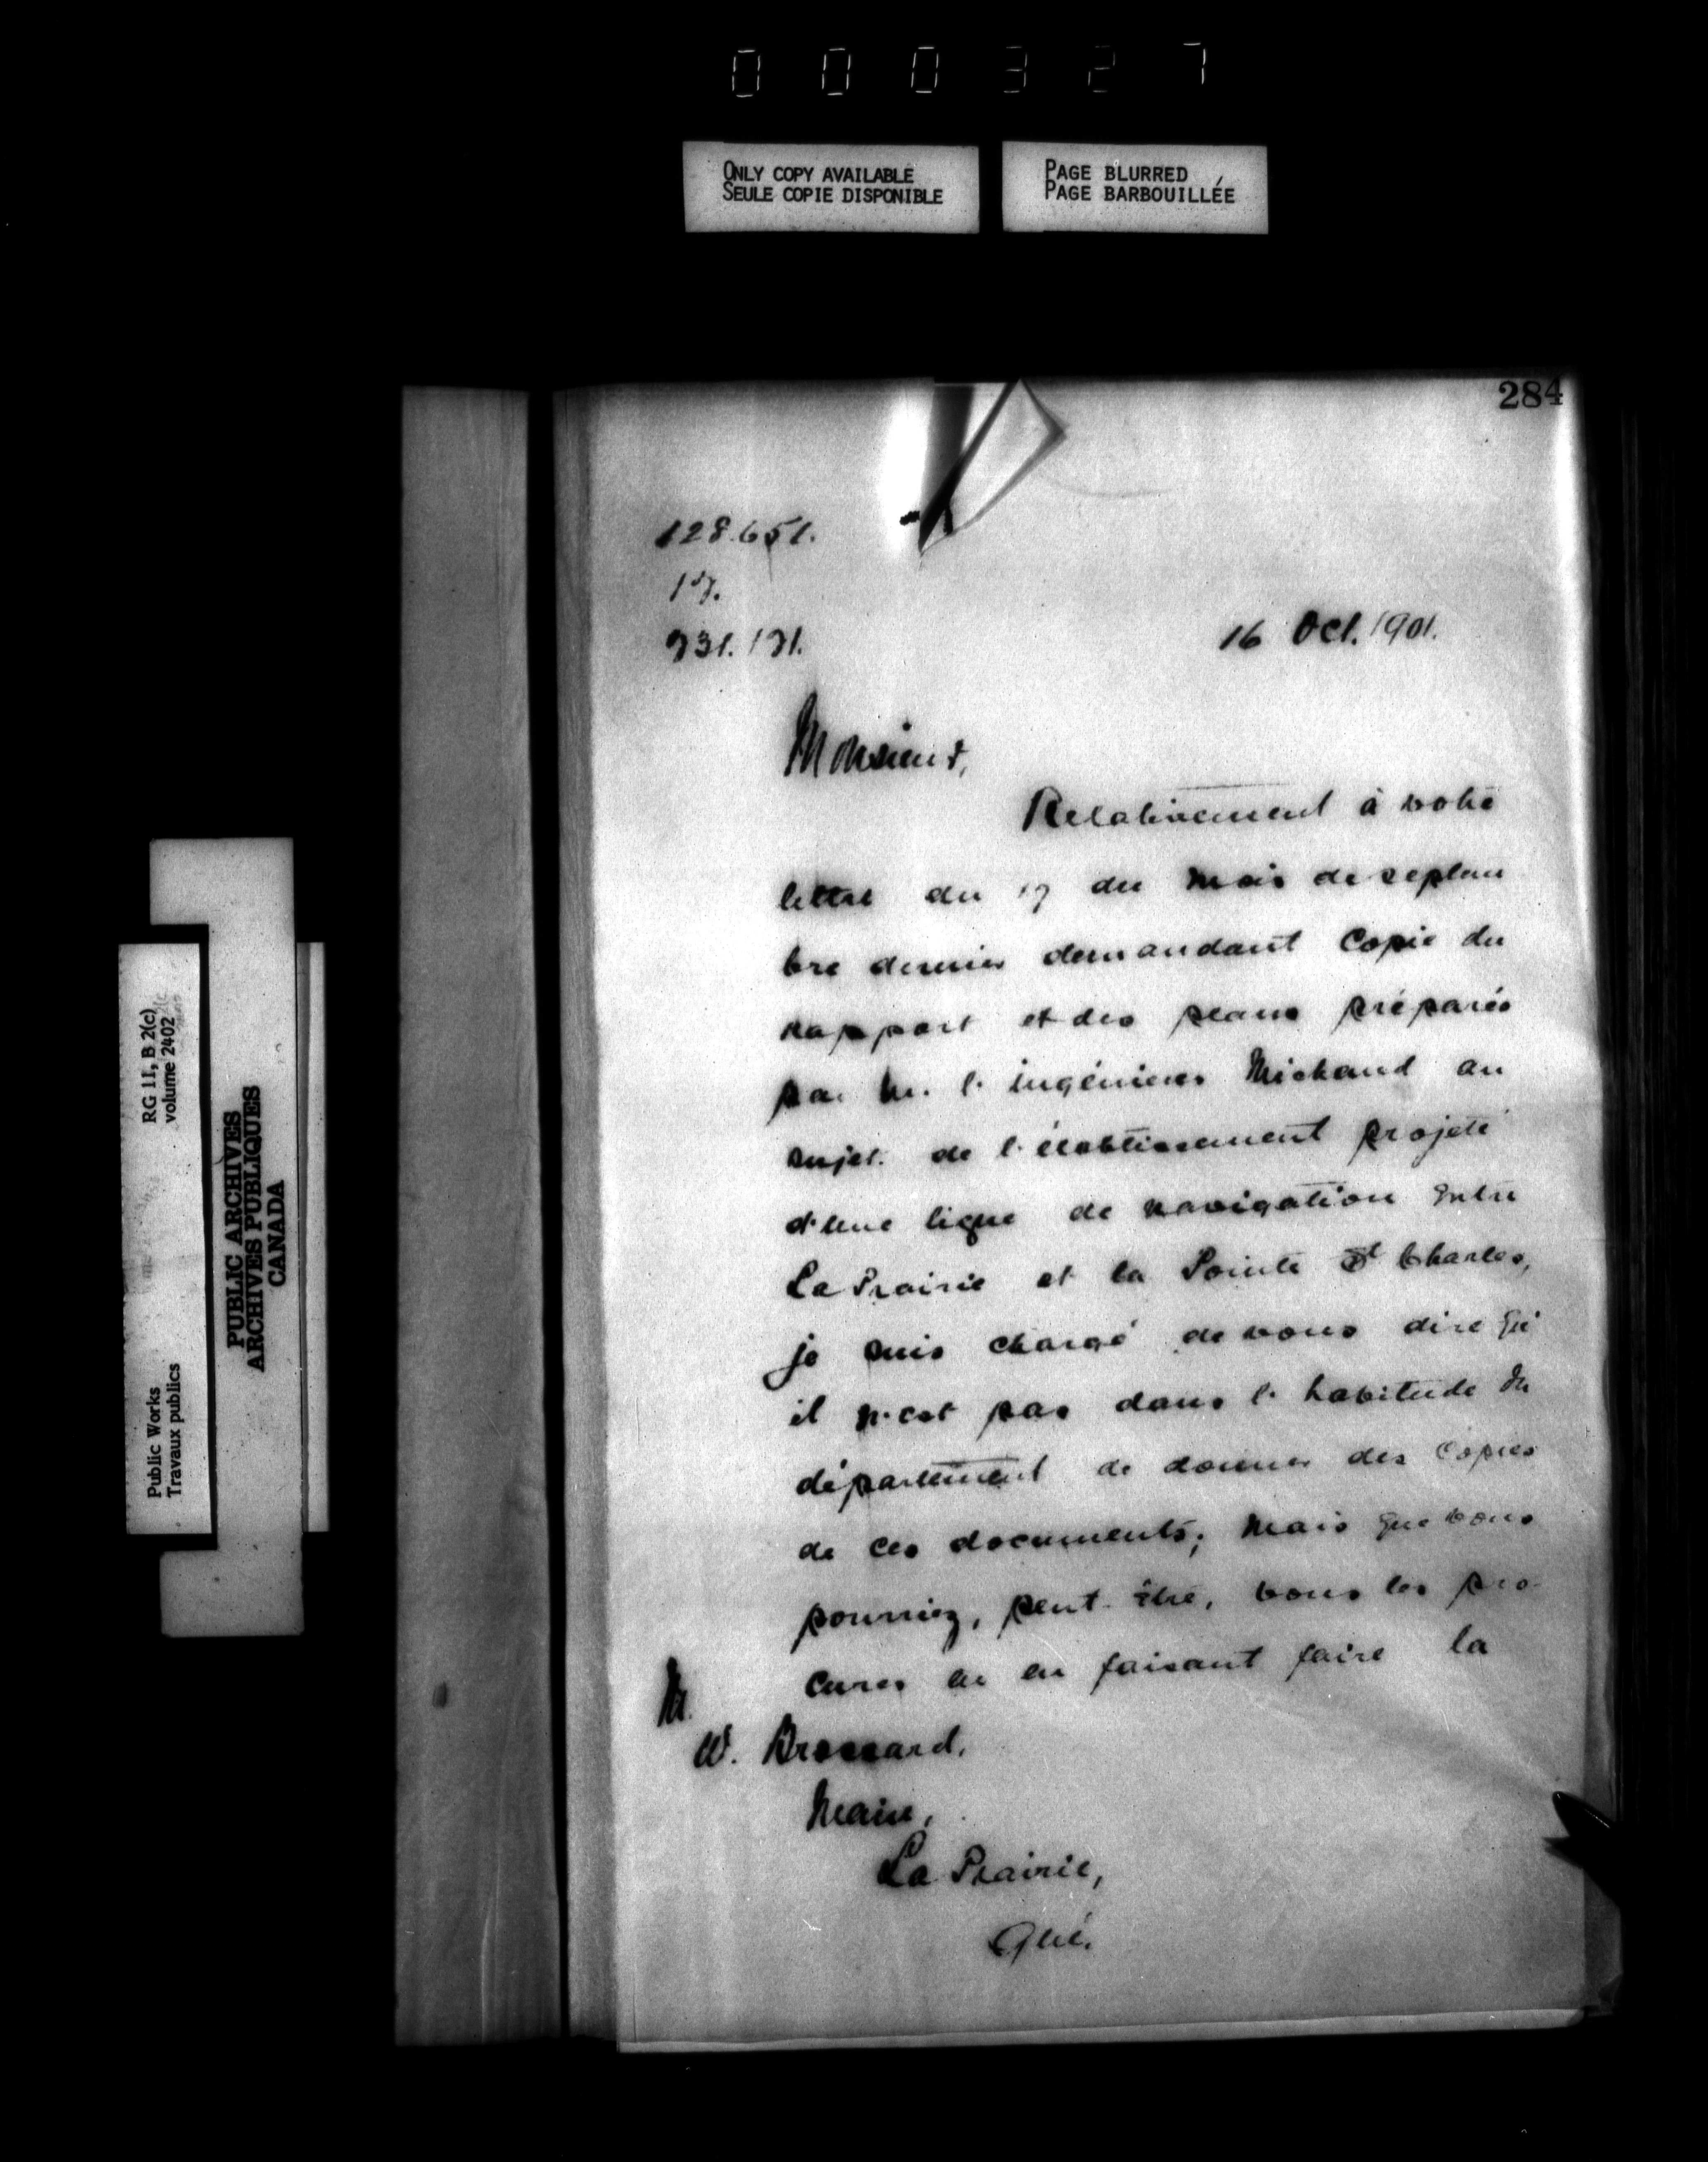 000327
ONLY COPY AVAILABLE
SEULE COPIE DISPONIBLE
PAGE BLURRED
PAGE BARBOUILLÉE
284
128.651.
16 Oct. 1901.
Monsieur,
Relativement à votre
lettre du 17 du mois de septem
bre dernier demandant copie du
rapport et des plans préparés
par M. l'ingénieur Michaud au
sujet de l'établissement projeté
d'une ligne de navigation entre
La Prairie et la Pointe St Charles,
je suis chargé de vous dire qu'
il n'est pas dans l'habitude du
département de donner des copies
de ces documents; mais que vous
pourriez, peut-être, vous les pro-
curer en en faisant faire la
M.
W. Brossard,
Maire,
La Prairie,
Qué.
RG 11, B 2(c)
volume 2402
Public Works
Travaux publics
PUBLIC ARCHIVES
ARCHIVES PUBLIQUES
CANADA